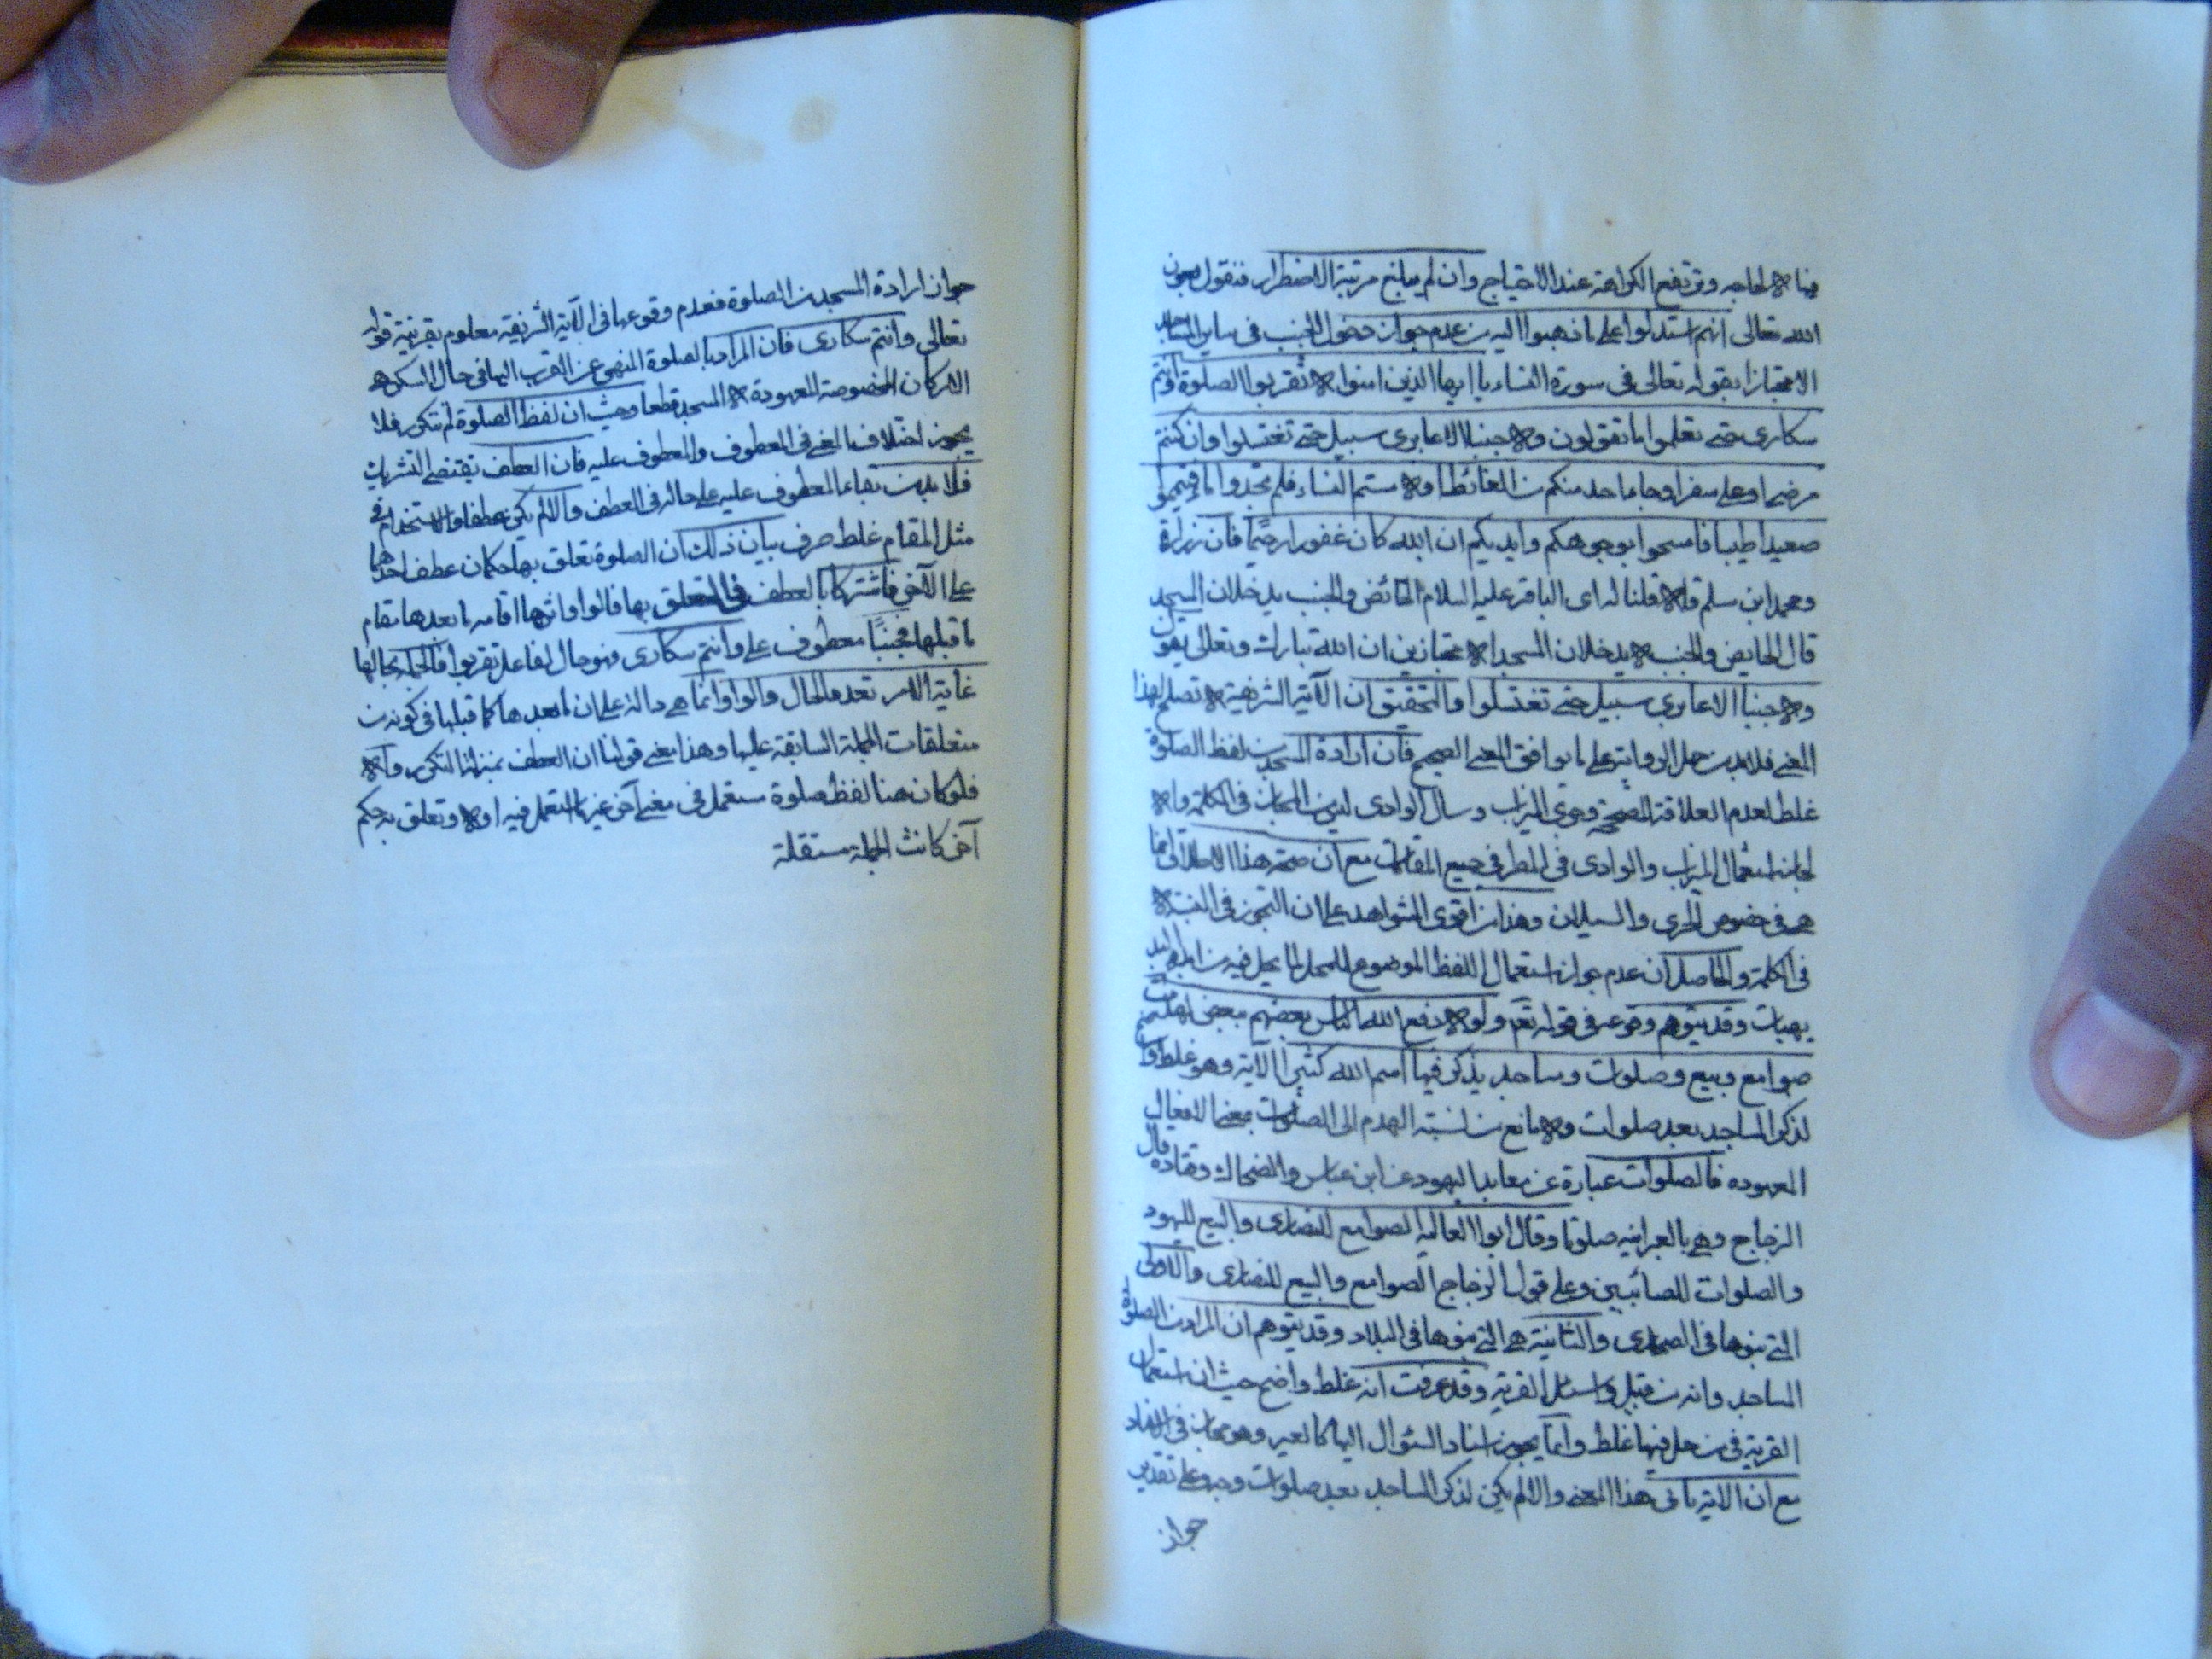 فيها لا لحاجه وترتفع الكراهة عند الاحتياج وان لم يبلغ مرتبة الاضطرار فنقول بعون
الله تعالى انهم استدلوا على ما ذهبوا اليه من عدم جواز دخول الجنب في ساير المساجد
الا مجتازا بقوله تعالى في سورة النساء يا ايها الذين امنوا لا تقربوا الصلوة وانتم
سكارى حتى تعلموا ما تقولون ولا جنبا الا عابرى سبيل حتى تغتسلوا وان كنتم
مرضى او على سفر او جاء احد منكم من الغائط او لامستم النساء فلم تجدوا ماء فتيمموا
صعيدا طيبا فامسحوا بوجوهكم وايديكم ان الله كان غفورا رحيما فان زرارة
ومحمد ابن مسلم قالا قلنا له اى الباقر عليه السلام الحائض والجنب يدخلان المسجد
قال الحايض والجنب لا يدخلان المسجد الا مجتازين ان الله تبارك وتعالى يقول
ولا جنبا الا عابري سبيل حتى تغتسلوا والتحقيق ان الآية الشريفة لا تصلح لهذا
المعنى فلا بد من حمل الرواية على ما يوافق المعنى الصحيح فان ارادة المسجد من لفظ الصلوة
غلط لعدم العلاقة المصححة وجرى الميزاب وسال الوادى ليس من المجاز في الكلمة والا
لجاز استعمال الميزاب والوادى في المطر في جميع المقامات مع ان صحة هذا الاطلاق انما
هى في خصوص الجرى والسيلان وهذا من اقوى الشواهد على ان التجوز في النسبة لا
في الكلمة والحاصل ان عدم جواز استعمال اللفظ الموضوع للمحل لما يحل فيه من
وقد يتوهم وقوعه في قوله تعم ولولا دفع الله الناس بعضهم ببعض لهدمت
صوامع وبيع وصلوات ومساجد يذكر فيها اسم الله كثيرا الآية وهو غلط واضح
لذكر المساجد بعد صلوات ولا مانع من نسبة الهدم الى الصلوات بمعنى الافعال
المعهوده فالصلوات عبارة عن معابد اليهود عن ابن عباس والضحاك وقتاده قال
الزجاج وهى بالعبرانيه صلوتا وقال ابوا العاليه الصوامع للنصارى والبيع لليهود
والصلوات للصائبين وعلى قول الزجاج الصوامع والبيع للنصارى والاولى
التى بنوها في الصحارى والثانية هى التى بنوها في البلاد وقد يتوهم ان المراد من الصلوة
المساجد وانه من قبيل واسئل القرية وقد عرفت انه غلط واضح حيث ان استعمال
القرية في من حل فيها غلط وانما يجوز اسناد السئوال اليها كالعير وهو مجاز في الاسناد
مع ان الاية تأبى هذا المعنى والا لم يكن لذكر المساجد بعد صلوات وجه وعلى تقدير
جواز
جواز ارادة المسجد من الصلوة فعدم وقوعها في الآية الشريفة معلوم بقرينة قوله
تعالى وانتم سكارى فان المراد بالصلوة المنهى عن القرب اليها في حال السكر هى
الاركان المخصوصة المعهودة لا المسجد قطعا وحيث ان لفظ الصلوة لم تتكرر فلا
يجوز اختلاف المعنى في المعطوف والمعطوف عليه فان العطف يقتضى التشريك
فلا بد من بقاء المعطوف عليه على حاله في العطف والا لم يكن عطفا والاستخدام في
مثل المقام غلط صرف بيان ذلك ان الصلوة تعلق بها حكمان عطف احدهما
على الآخر فاشتركا بالعطف في التعلق بها فالواو اثرها اقامه ما بعدها مقام
ما قبلها فجنبا معطوف على وانتم سكارى وهو حال لفاعل تقربوا فالجملة بحالها
غاية الامر تعدد الحال والواو انما هى دالة على ان ما بعدها كما قبلها في كونه من
متعلقات الجملة السابقة عليها وهذا معنى قولنا ان العطف بمنزلة التكرير والا
فلو كان هنا لفظ صلوة مستعمل في معنى آخر غير ما استعمل فيه اولا وتعلق به حكم
آخر كانت الجملة مستقلة